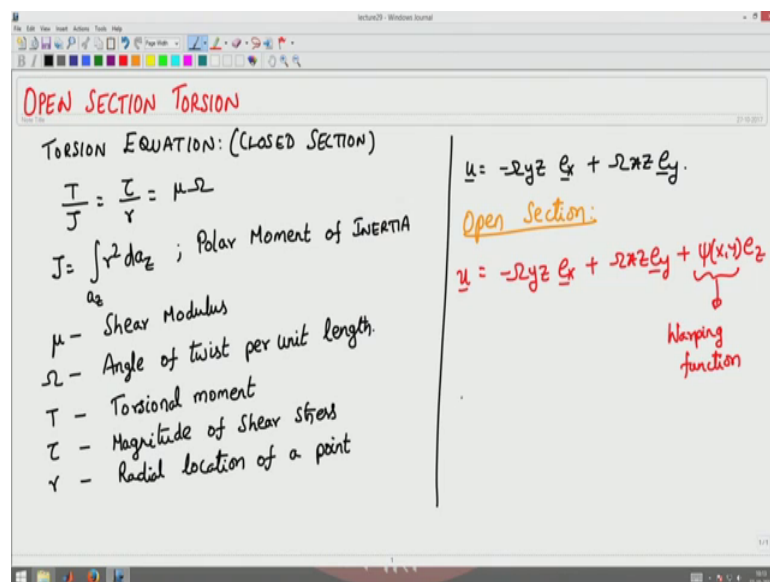 lecture29 - Windows Journal
File Edit View Insert Actions Tools Help
Page Width
OPEN SECTION TORSION
Note Title
27-10-2017
TORSION EQUATION: (CLOSED SECTION)
T/J = τ/r = μΩ
J = ∫_{a_z} r² da_z ; Polar Moment of INERTIA
μ – Shear Modulus
Ω – Angle of twist per unit length.
T – Torsional moment
τ – Magnitude of Shear stress
r – Radial location of a point
u = -Ωyz e_x + Ωxz e_y.
Open Section:
u = -Ωyz e_x + Ωxz e_y + ψ(x,y) e_z
Warping
function
1/1